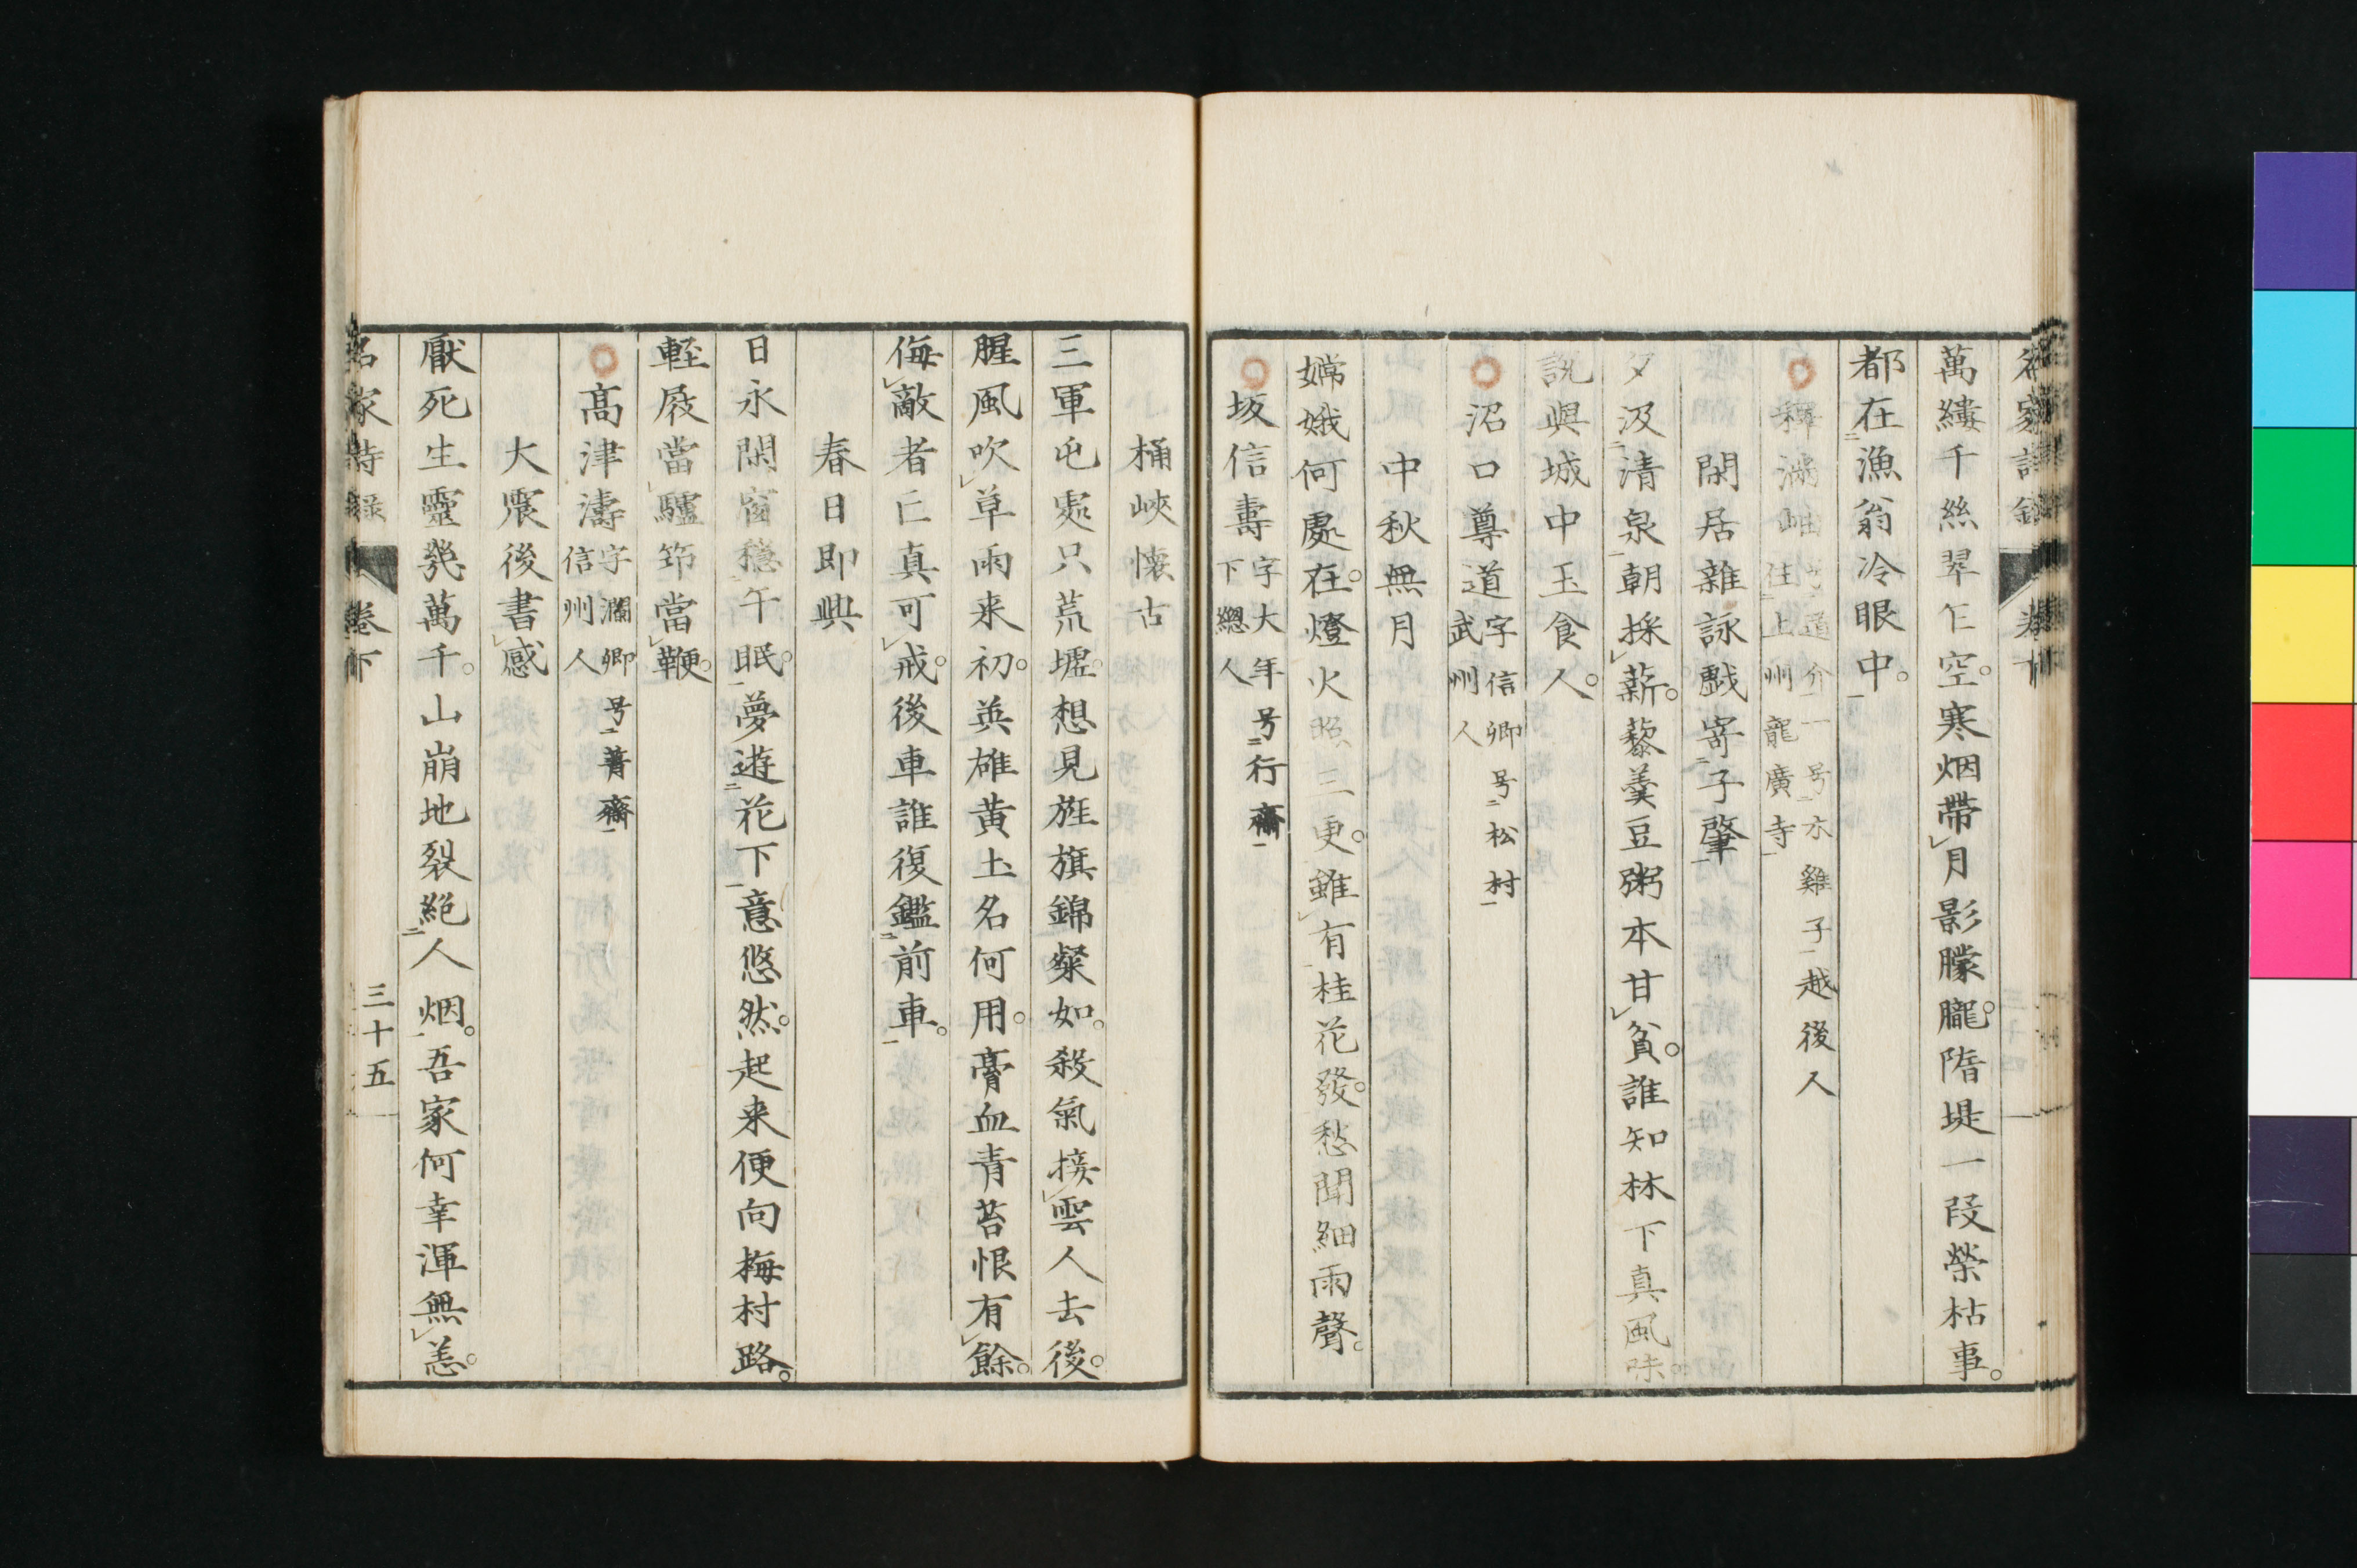 萬縷千絲翠乍空。寒烟帶月影朦朧。隋堤一段榮枯事。
都在漁翁冷眼中。
釋滿岫 字道介一号木雞子越後人
住上州龍廣寺
閑居雜詠戲寄子肇
夕汲清泉朝採薪。藜羹豆粥本甘貧。誰知林下真風味。
說與城中玉食人。
沼口尊道 字信卿号松村
武州人
中秋無月
嫦娥何處在。燈火照三更。雖有桂花發。愁聞細雨聲。
坂信壽 字大年号行齋
下總人
桶峽懷古
三軍屯處只荒墟。想見旌旗錦粲如。殺氣接雲人去後。
腥風吹草雨来初。英雄黃土名何用。膏血青苔恨有餘。
侮敵者亡真可戒。後車誰復鑑前車。
春日即興
日永閑窗穩午眠。夢遊花下意悠然。起来便向梅村路。
輕屐當驢笻當鞭。
高津濤 字瀾卿号菁齋
信州人
大震後書感
厭死生靈幾萬千。山崩地裂絕人烟。吾家何幸渾無恙。
名家詩録 卷下 三十五